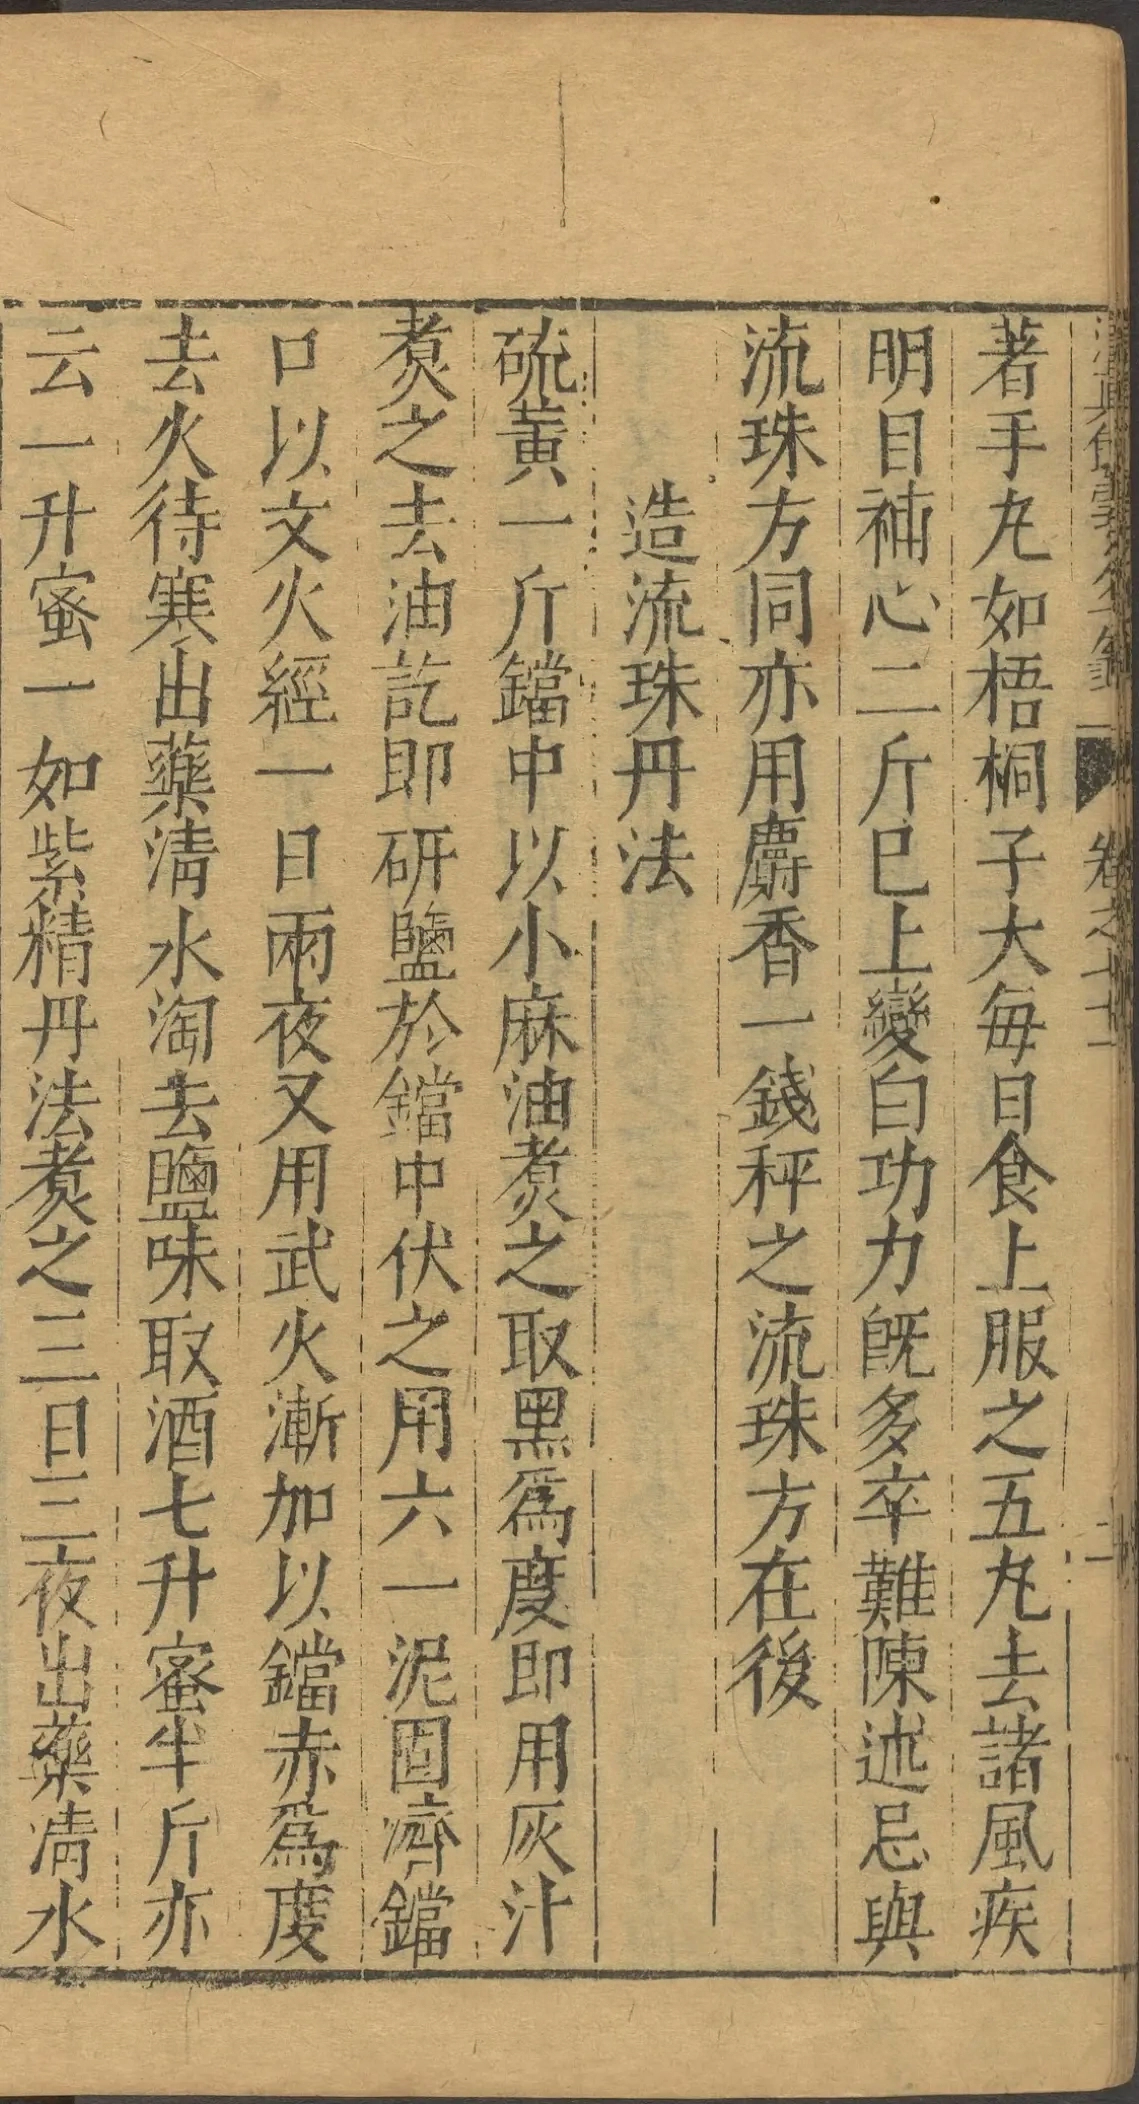 著手丸如梧桐子大每日食上服之五丸去諸風疾
明目補心二斤已上變白功力既多卒難陳述忌與
流珠方同亦用麝香一錢秤之流珠方在後
造流珠丹法
硫黃一斤鐺中以小麻油煑之取黑爲度即用灰汁
煑之去油訖即研鹽於鐺中伏之用六一泥固濟鐺
口以文火經一日兩夜又用武火漸加以鐺赤爲度
去火待寒出藥清水淘去鹽味取酒七升蜜半斤亦
云一升蜜一如紫精丹法煑之三日三夜出藥清水